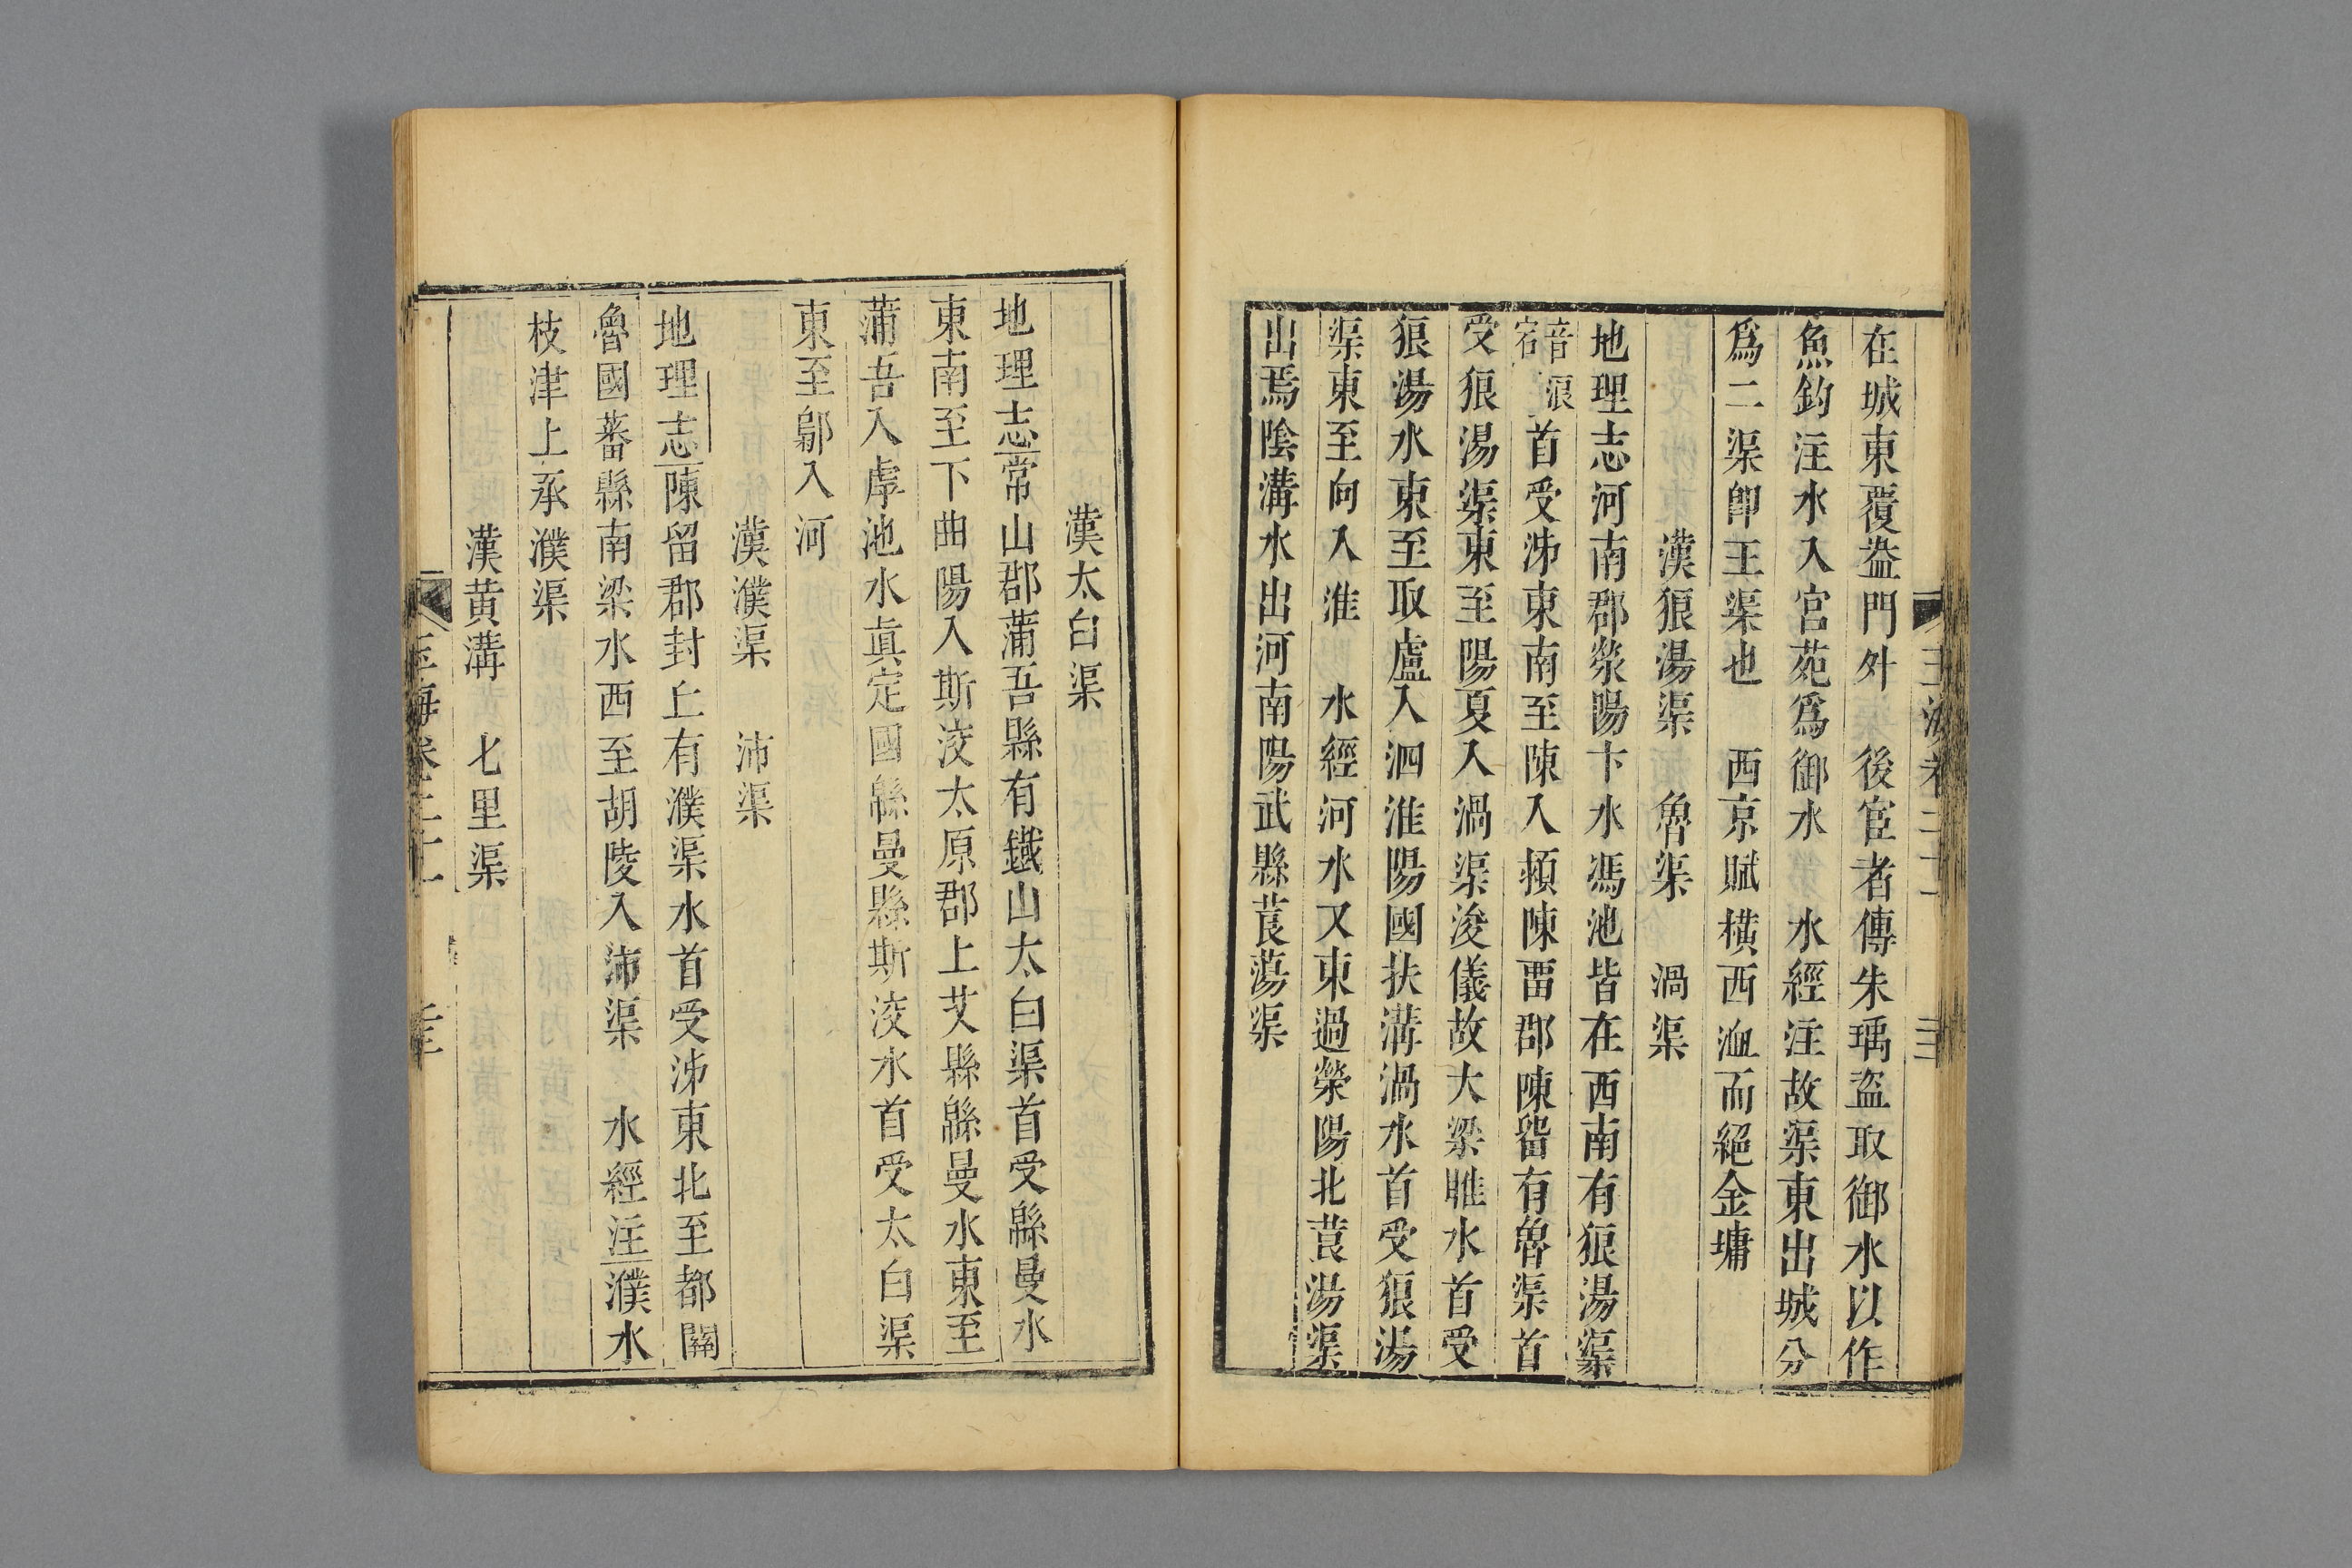 在城東覆盎門外　後宦者傳朱瑀盜取御水以作
魚釣注水入宮苑爲御水　水經注故渠東出城分
爲二渠卽王渠也　西京賦橫西洫而絕金墉
漢狼湯渠　魯渠　渦渠
地理志河南郡滎陽卞水馮池皆在西南有狼湯渠
音浪宕首受泲東南至陳入潁陳畱郡陳畱有魯渠首
受狼湯渠東至陽夏入渦渠浚儀故大梁睢水首受
狼湯水東至取慮入泗淮陽國扶溝渦水首受狼湯
渠東至向入淮　水經河水又東過滎陽北莨湯渠
出焉陰溝水出河南陽武縣莨蕩渠
漢太白渠
地理志常山郡蒲吾縣有鐵山太白渠首受緜曼水
東南至下曲陽入斯洨太原郡上艾縣緜曼水東至
蒲吾入虖池水眞定國緜曼縣斯洨水首受太白渠
東至鄡入河
漢濮渠　沛渠
地理志陳留郡封丘有濮渠水首受泲東北至都關
魯國蕃縣南梁水西至胡陵入沛渠　水經注濮水
枝津上承濮渠
漢黃溝　七里渠
玉海卷二十一